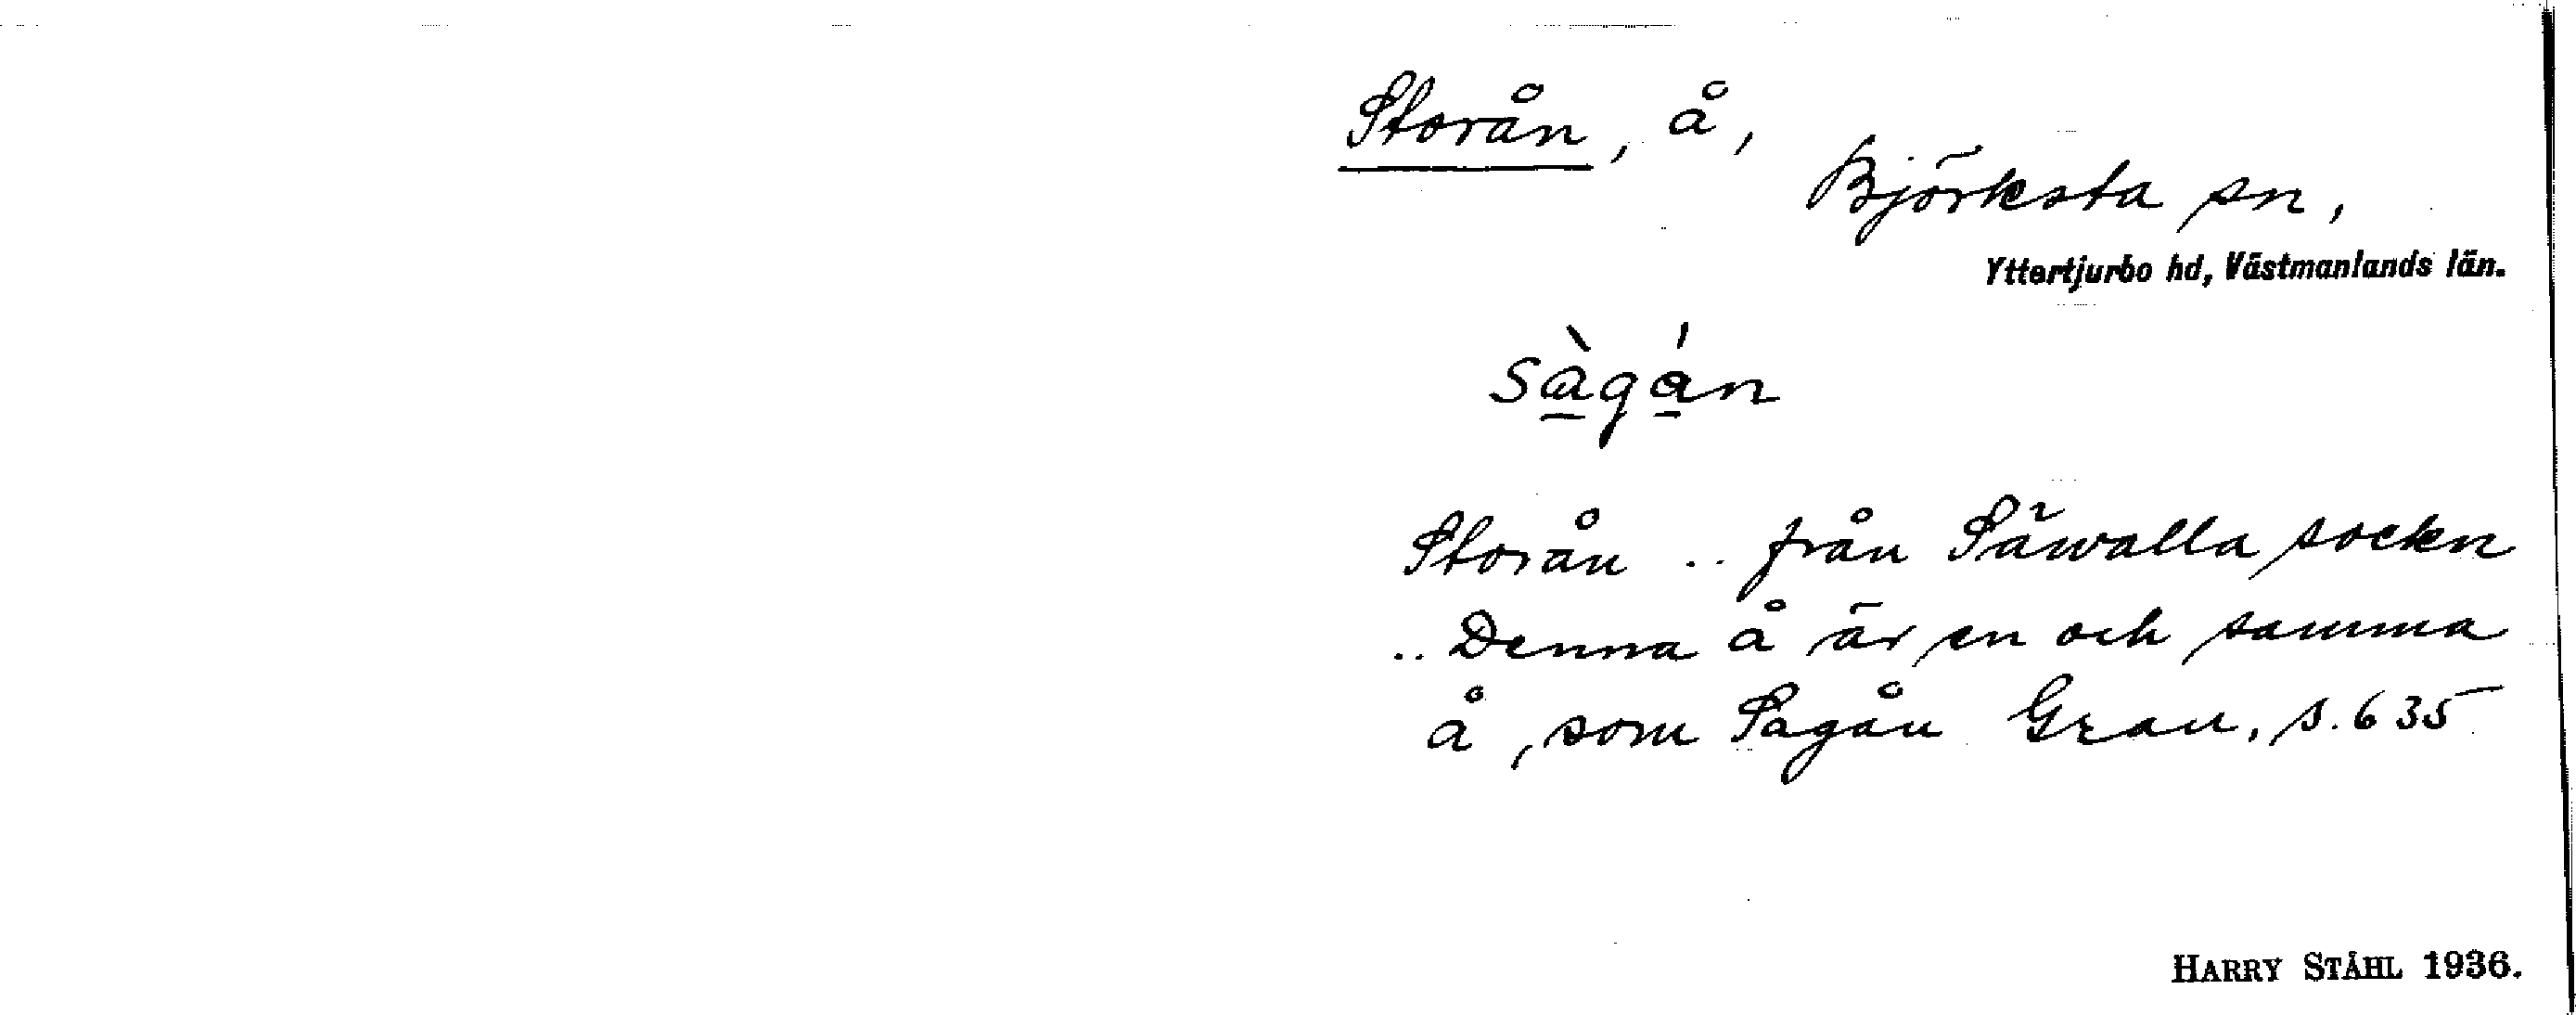 Storån, å,
Björksta sn,
Yttertjurbo hd, Västmanlands län.
sàgán
Storån .. från Säwalla sockn
.. Denna å är en och samma
å, som Sagån Grau, s. 635
HARRY STÅHL 1936.